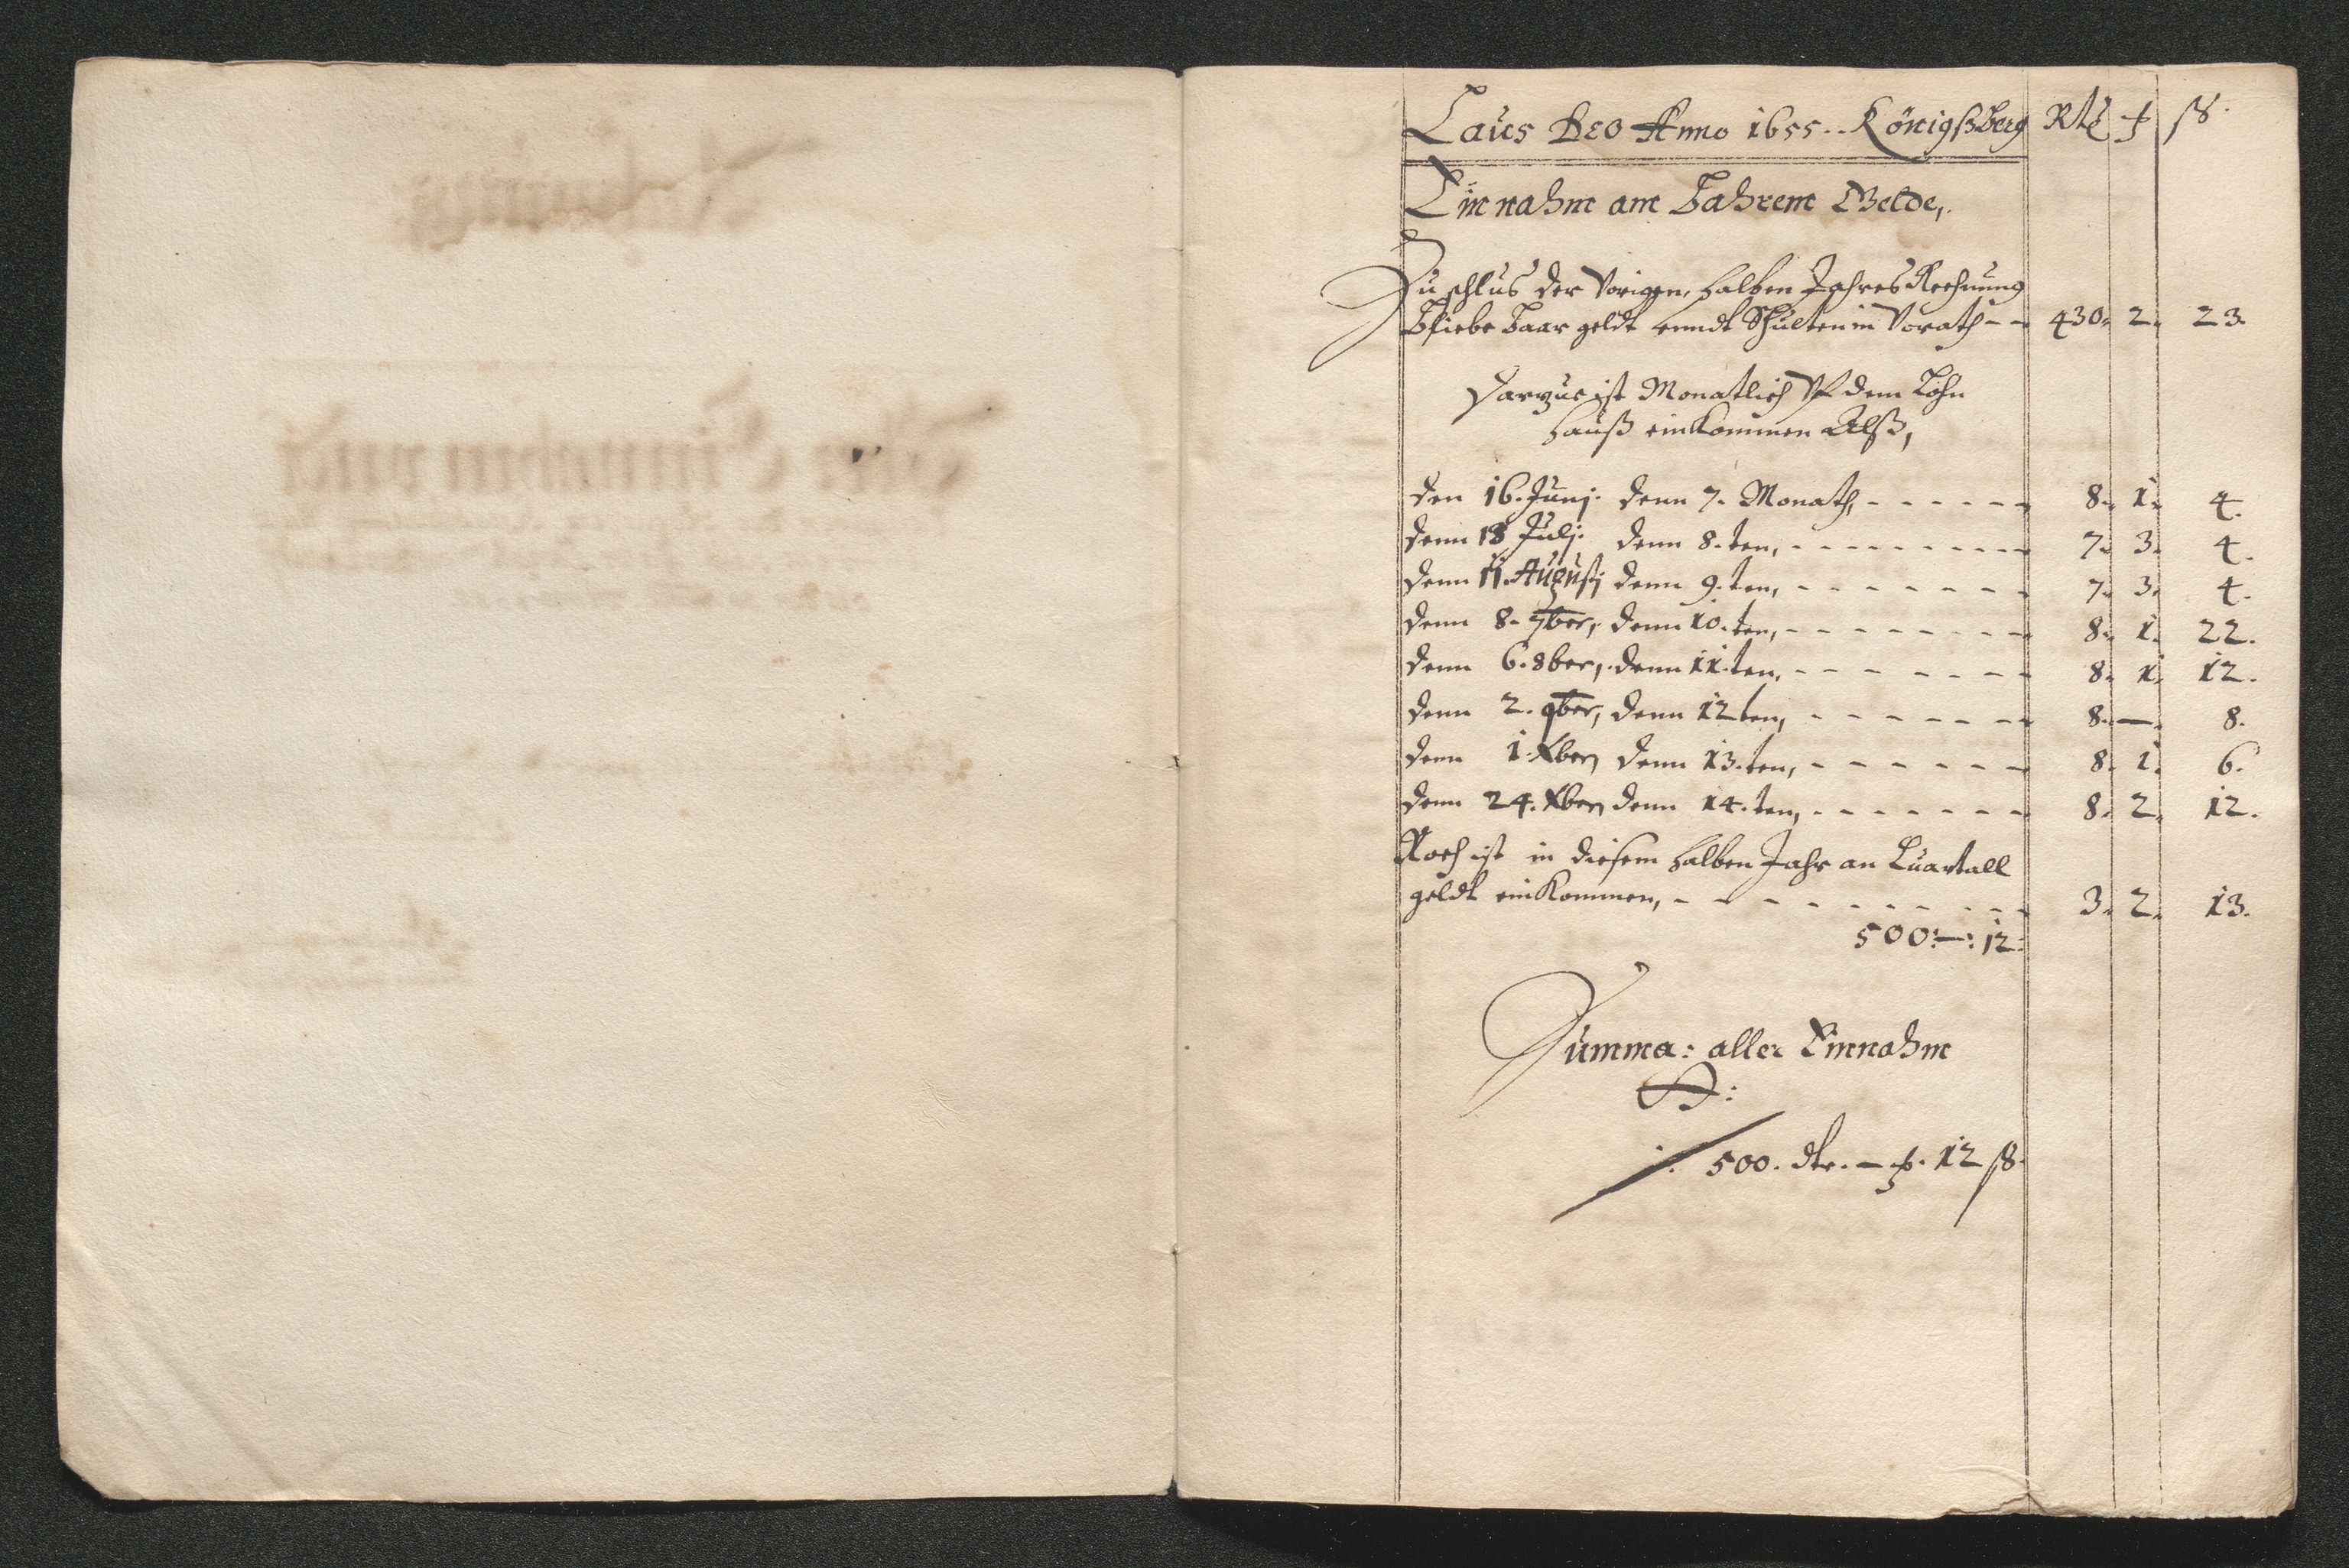 Laus Deo Anno 1655. Königßberg Rtl ß
Einnahm am Bahrem Gelde,
Zu schlus der Vorigen, halben Jahres Rechnung
bliebe Baar geldt unndt Schulten in Vorath - - 430. 2. 23.
Darzue ist Monatlich Vf dem Lohn
hauß einkommen Alß,
den 16. Junj. denn 7. Monath, - - - - - - 8. 1. 4.
denn 18 Julj. denn 8.ten, - - - - - - - - - 7. 3. 4.
denn 11. Augustj denn 9.ten, - - - - - - - 7. 3. 4.
denn 8. 7ber, denn 10.ten, - - - - - - - - 8. 1. 22.
denn 6. 8ber, denn 11.ten, - - - - - - - 8. 1. 12.
denn 2. 9ber, denn 12ten, - - - - - - - 8. — 8.
denn 1. Xber, denn 13.ten, - - - - - - - 8. 1. 6.
denn 24. Xber, denn 14.ten, - - - - - - - 8. 2. 12.
Noch ist in diesem halben Jahr an Quartall
geldt einkommen, - - - - - - - - - 3. 2. 13.
500:—: 12:
Summa: aller Einnahm
500. dlr. — 12 ß.